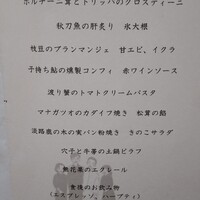 ポルチーニ茸とトリッパのクロスティーニ
秋刀魚の肝炙り　水大根
枝豆のブランマンジェ　甘エビ、イクラ
子持ち鮎の燻製コンフィ　赤ワインソース
渡り蟹のトマトクリームパスタ
マナガツオのカダイフ焼き　松茸の餡
淡路鹿の木の実パン粉焼き　きのこサラダ
穴子と牛蒡の土鍋ピラフ
無花果のエクレール
食後のお飲み物
(エスプレッソ、ハーブティ)